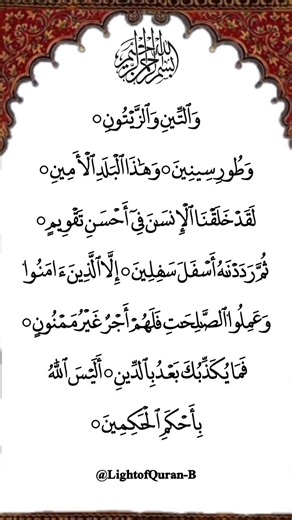 بسم الله الرحمن الرحيم
وَٱلتِّينِ وَٱلزَّيْتُونِ ۝
وَطُورِ سِينِينَ ۝ وَهَٰذَا ٱلْبَلَدِ ٱلْأَمِينِ ۝
لَقَدْ خَلَقْنَا ٱلْإِنسَٰنَ فِىٓ أَحْسَنِ تَقْوِيمٍ ۝
ثُمَّ رَدَدْنَٰهُ أَسْفَلَ سَٰفِلِينَ ۝ إِلَّا ٱلَّذِينَ ءَامَنُوا۟
وَعَمِلُوا۟ ٱلصَّٰلِحَٰتِ فَلَهُمْ أَجْرٌ غَيْرُ مَمْنُونٍ ۝
فَمَا يُكَذِّبُكَ بَعْدُ بِٱلدِّينِ ۝ أَلَيْسَ ٱللَّهُ
بِأَحْكَمِ ٱلْحَٰكِمِينَ ۝
@LightofQuran-B